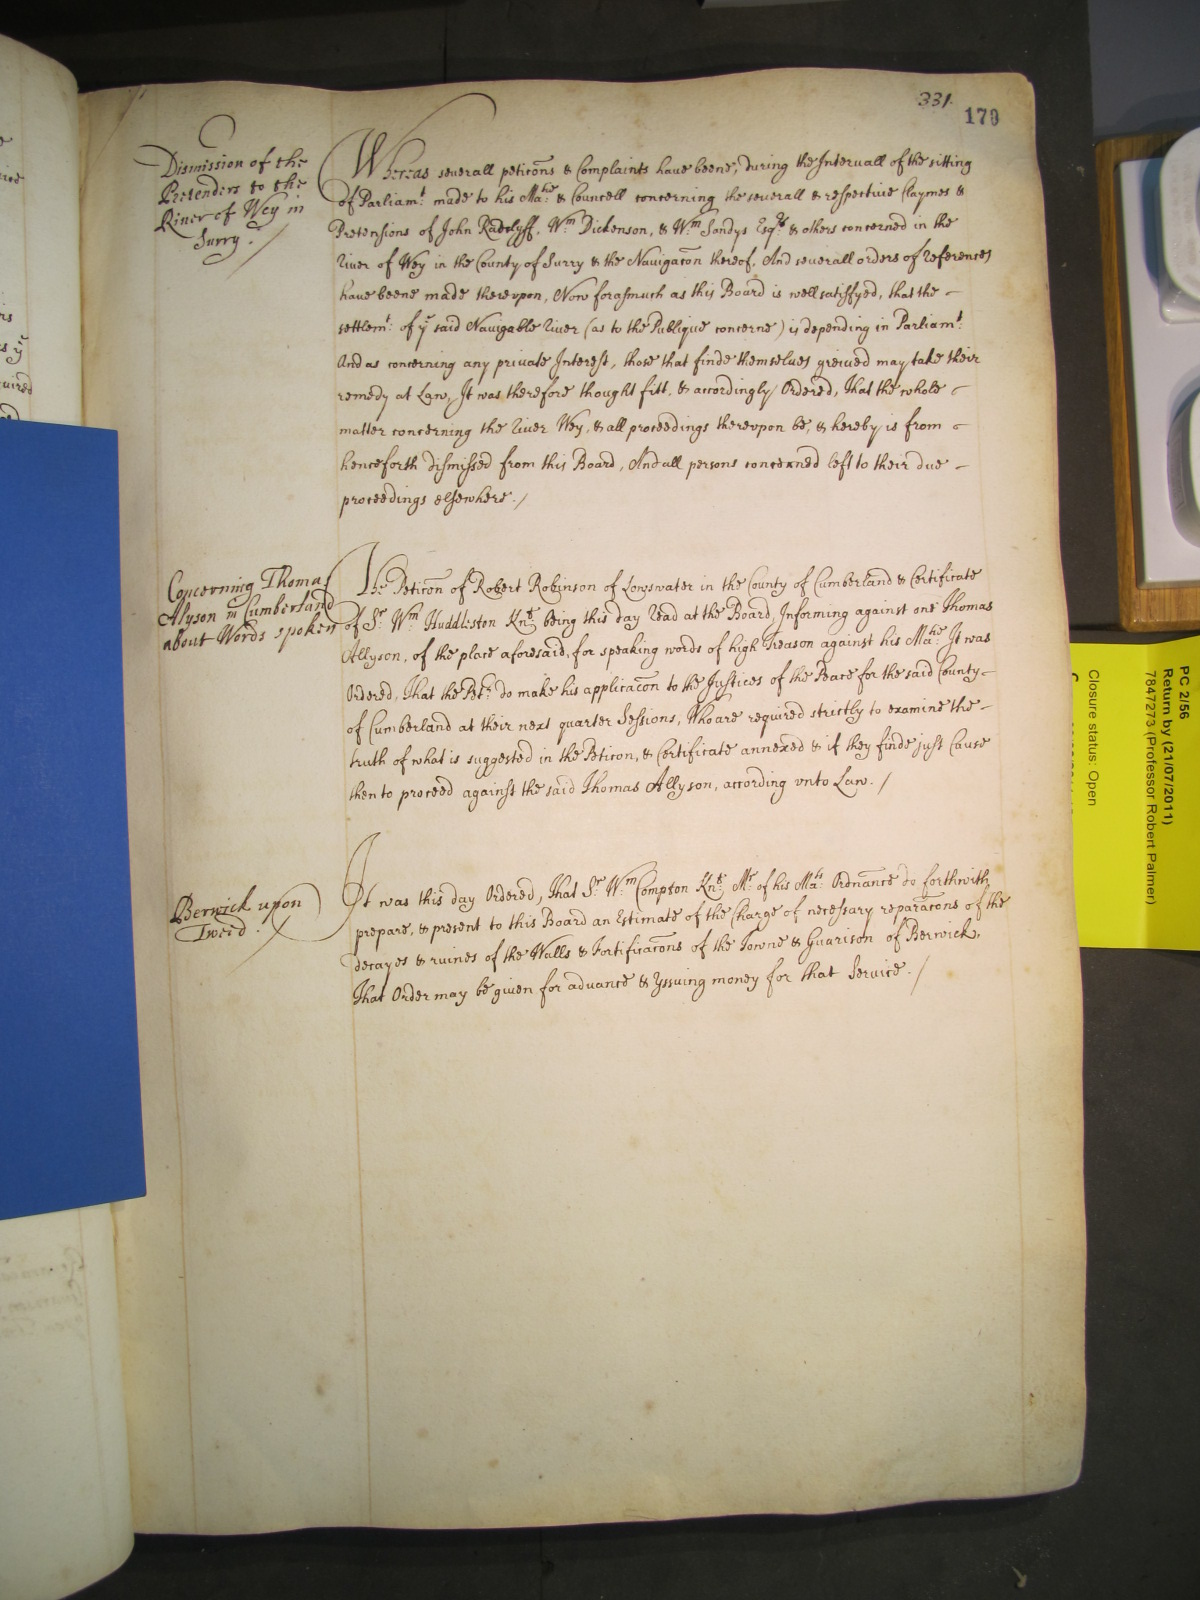 331.
179
Dismission of the
Pretenders to the
River of Wey in
Surry. /
Whereas severall peticons & Complaints have beene, during the Intervall of the sitting
of Parliamt. made to his Matie & Councell concerning the severall & respective Claymes &
Pretensions of John Radclyff, Wm Dickenson, & Wm Sandys Esqrs & others concerned in the
River of Wey in the County of Surry & the Navigacon thereof, And severall orders of References
have beene made thereupon, Now forasmuch as this Board is well satisfyed, that the –
settlemt. of ye said Navigable River (as to the Publique concerne) is depending in Parliamt.
And as concerning any private Interest, those that finde themselves greived may take their
remedy at Law, It was therefore thought fitt, & accordingly Ordered, That the whole –
matter concerning the River Wey, & all proceedings thereupon be, & hereby is from –
henceforth dismissed from this Board, And all persons concerned left to their due –
proceedings elsewhere. /
Concerning Thomas
Alyson in Cumberland
about Words spoken
The Peticon of Robert Robinson of Lowswater in the County of Cumberland & Certificate
of Sr. Wm Huddleston Knt. being this day Read at the Board, Informing against one Thomas
Allyson, of the place aforesaid, for speaking words of high Treason against his Matie It was
Ordered, That the Petr. do make his applicacon to the Justices of the Peace for the said County –
of Cumberland at their next quarter Sessions, Who are required strictly to examine the –
truth of what is suggested in the Peticon, & Certificate annexed & if they finde just Cause
then to proceed against the said Thomas Allyson, according unto Law. /
Berwick upon
Tweed.
It was this day Ordered, That Sr Wm Compton Knt. Mr. of his Mats. Ordnance do forthwith
prepare, & present to this Board an Estimate of the Charge of necessary reparacons of the
decayes & ruines of the Walls & Fortificacons of the Towne & Guarison of Berwick,
That Order may be given for advance & yssuing money for that Service. /
PC 2/56
Return by (21/07/2011)
7847273 (Professor Robert Palmer)
Closure status: Open